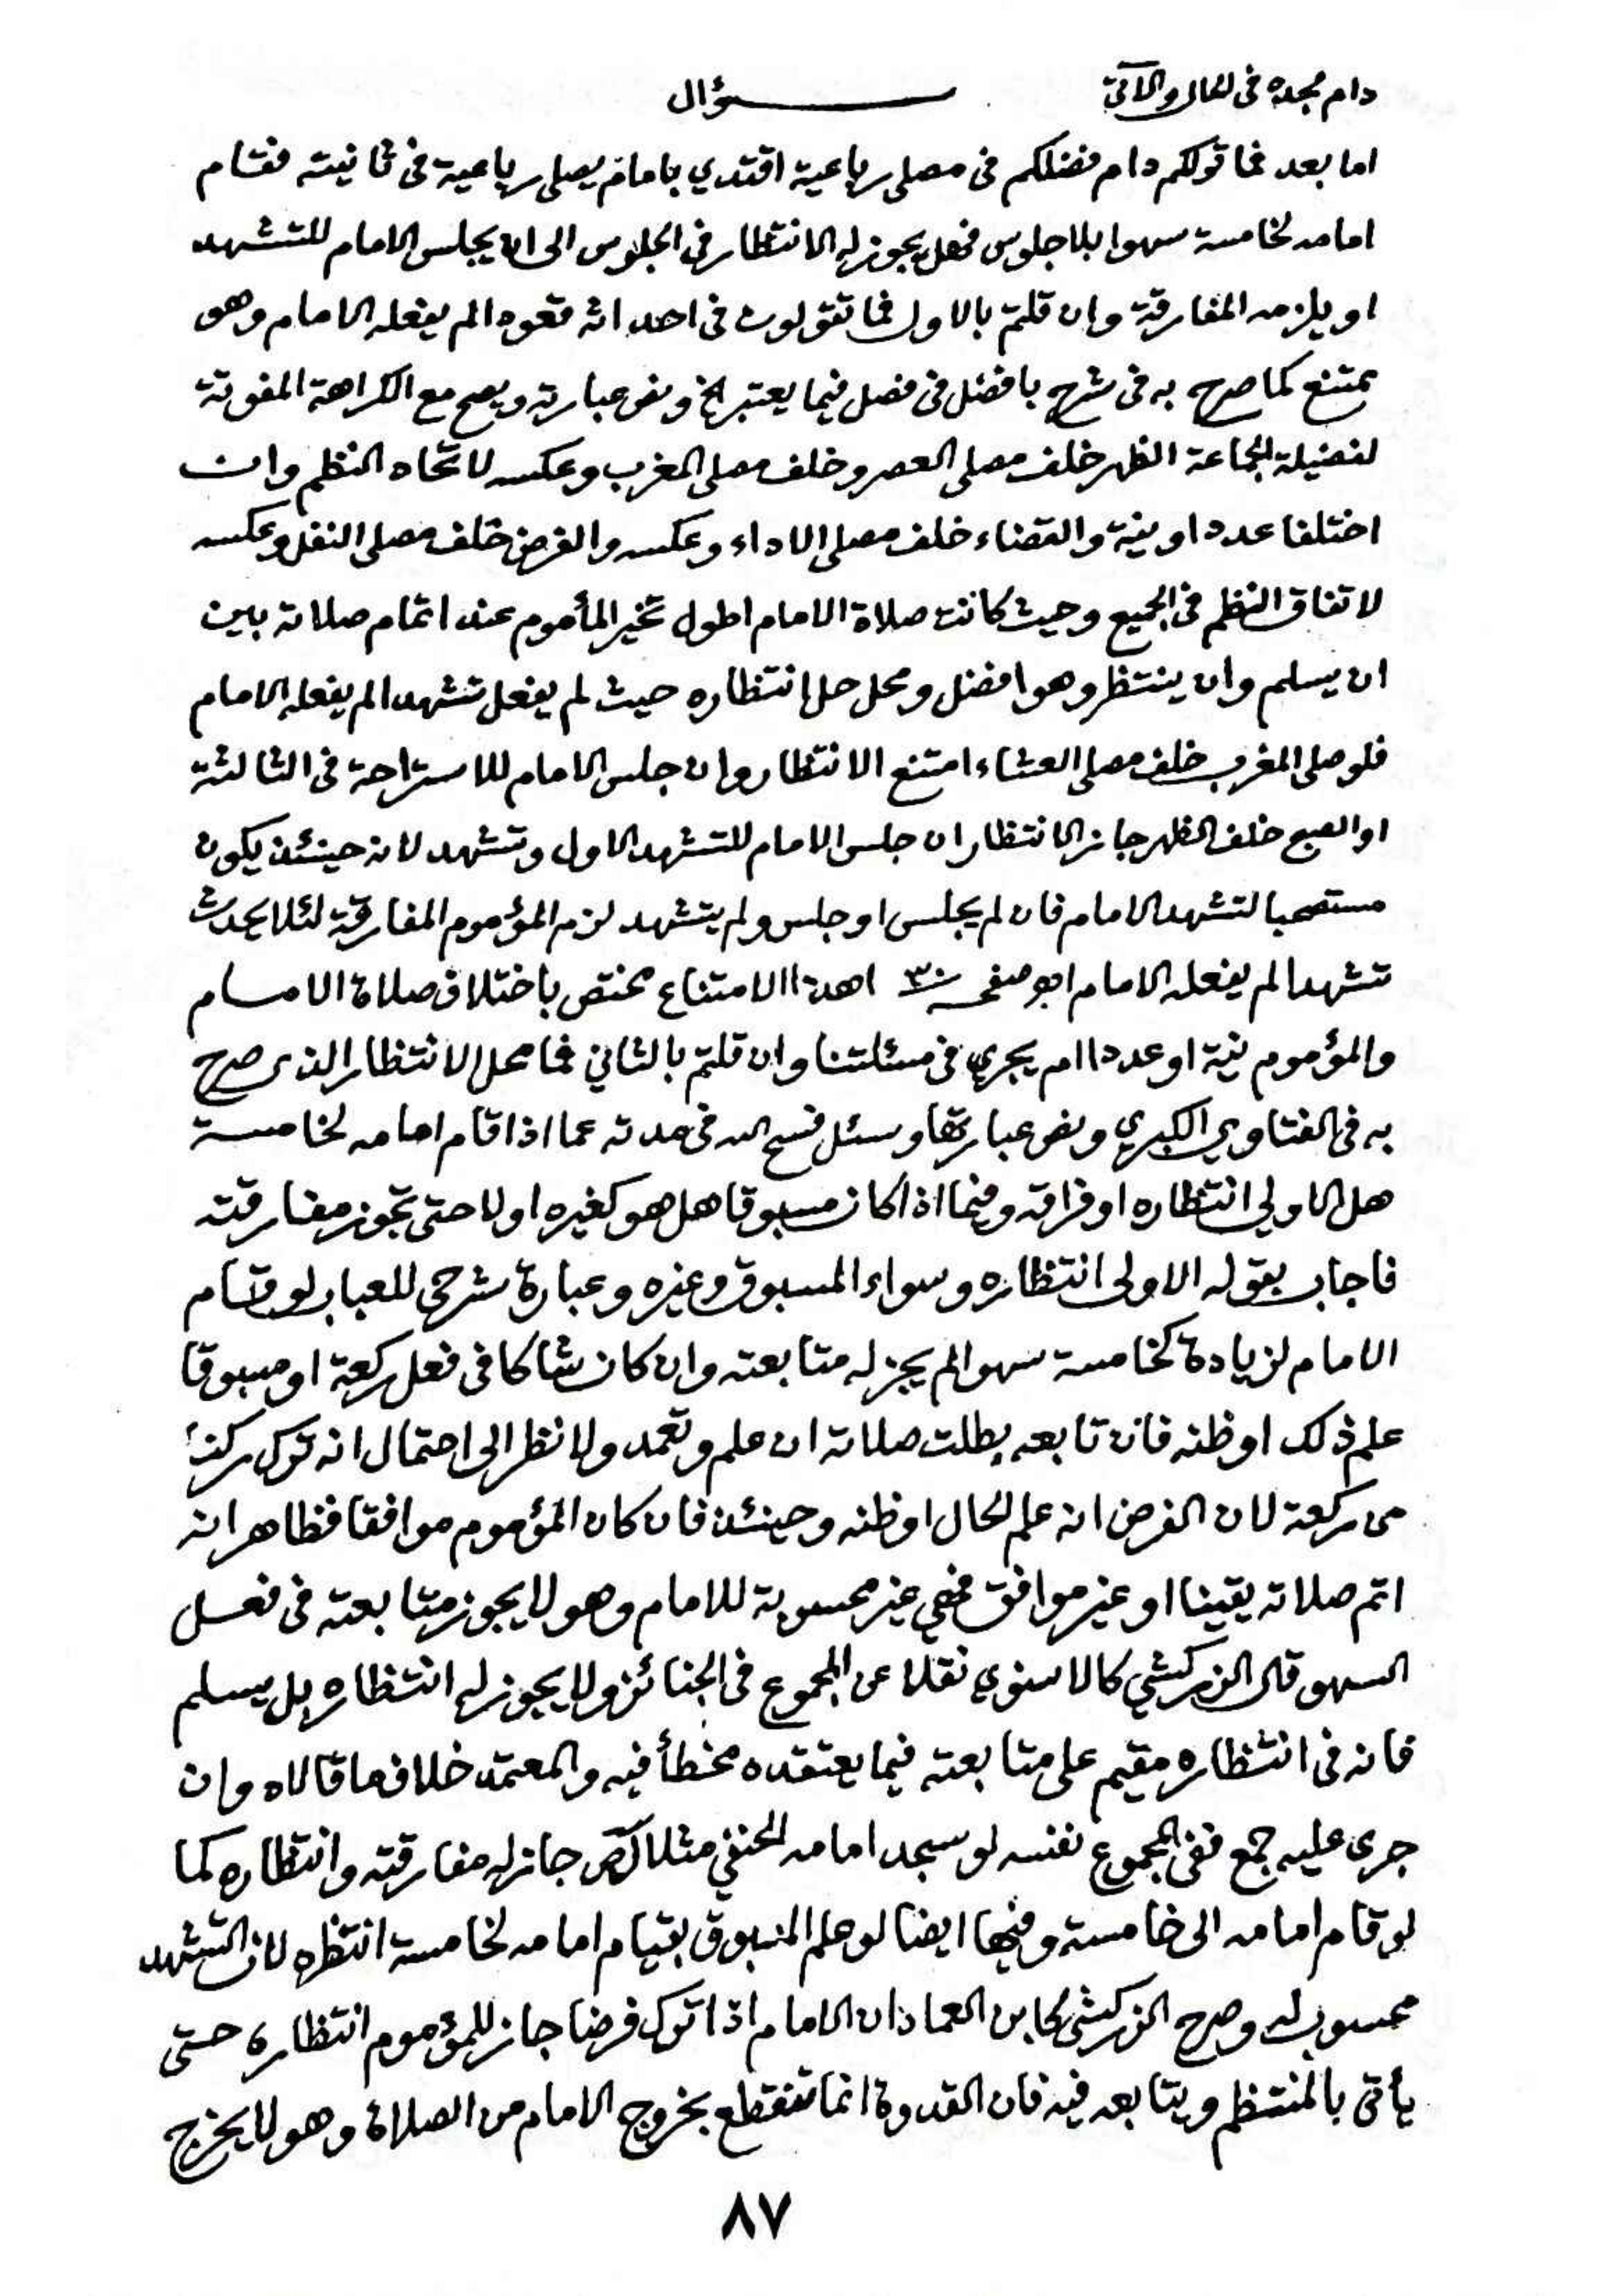 دام مجده في الحال والآتي سؤال
اما بعد فما قولكم دام فضلكم في مصلى رباعية اقتدي بامام يصلى رباعية في ثانيته فقام
امامه لخامسة سهوا بلا جلوس فهل يجوز له الانتظار في الجلوس الى ان يجلس الامام للتشهد
او يلزمه المفارقة وان قلتم بالاول فما تقولون في احداثه قعودا لم يفعله الامام وهو
يمتنع كما صرح به في شرح بافضل في فصل فيما يعتبر الخ ونص عبارته ويصح مع الكراهة المفوتة
لفضيلة الجماعة الظهر خلف مصلى العصر وخلف مصلى المغرب وعكسه لاتحاد النظم وان
اختلفا عددا ونية والقضاء خلف مصلى الاداء وعكسه والفرض خلف مصلى النفل وعكسه
لاتفاق النظم في الجميع وحيث كانت صلاة الامام اطول تخير المأموم عند اتمام صلاته بين
ان يسلم وان ينتظر وهو افضل ومحل حل انتظاره حيث لم يفعل تشهدا لم يفعله الامام
فلو صلى المغرب خلف مصلى العشاء امتنع الانتظار وان جلس الامام للاستراحة في الثالثة
او الصبح خلف الظهر جاز الانتظار ان جلس الامام للتشهد الاول وتشهد لانه حينئذ يكون
مستصحبا لتشهد الامام فان لم يجلس او جلس ولم يتشهد لزم المؤموم المفارقة لئلا يحدث
تشهدا لم يفعله الامام صفحـ ٣ اهذا الامتناع مختص باختلاف صلاة الامام
والمؤموم نية او عددا ام يجري في مسئلتنا وان قلتم بالثاني فما محل الانتظار الذي صرح
به في الفتاوي الكبري ونص عبارتها وسئل فسح الله في مدته عما اذا قام امامه لخامسة
هل الاولي انتظاره او فراقه وفيما اذا كان مسبوقا هل هو كغيره اولا حتى تجوز مفارقته
فاجاب بقوله الاولى انتظاره وسواء المسبوق وغيره وعبارة شرحى للعباب لو قام
الامام لزيادة كخامسة سهوا لم يجز له متابعته وان كان شاكا في فعل ركعة او مسبوقا
علم ذلك او ظنه فان تابعه بطلت صلاته ان علم وتعمد ولا نظر الى احتمال انه ترك ركنا
من ركعة لان الفرض انه علم الحال او ظنه وحينئذ فان كان المؤموم موافقا فظاهر انه
اتم صلاته يقينا او غير موافق فهي غير محسوبة للامام وهو لا يجوز متابعته في فعل
السهو قال الزركشي كالاسنوي نقلا عن المجموع في الجنائز ولا يجوز له انتظاره بل يسلم
فانه في انتظاره مقيم على متابعته فيما يعتقده مخطأ فيه والمعتمد خلاف ما قالاه وان
جرى عليه جمع ففي المجموع نفسه لو سجد امامه الحنفي مثلا لص جاز له مفارقته وانتظاره كما
لو قام امامه الى خامسة وفيها ايضا لو علم المسبوق بقيام امامه لخامسة انتظره لان التشهد
محسوب له وصرح الزركشى كابن العماد ان الامام اذا ترك فرضا جاز للمؤموم انتظاره حتى
يأتى بالمنتظم ويتابعه فيه فان القدوة انما تنقطع بخروج الامام من الصلاة وهو لا يخرج
٨٧